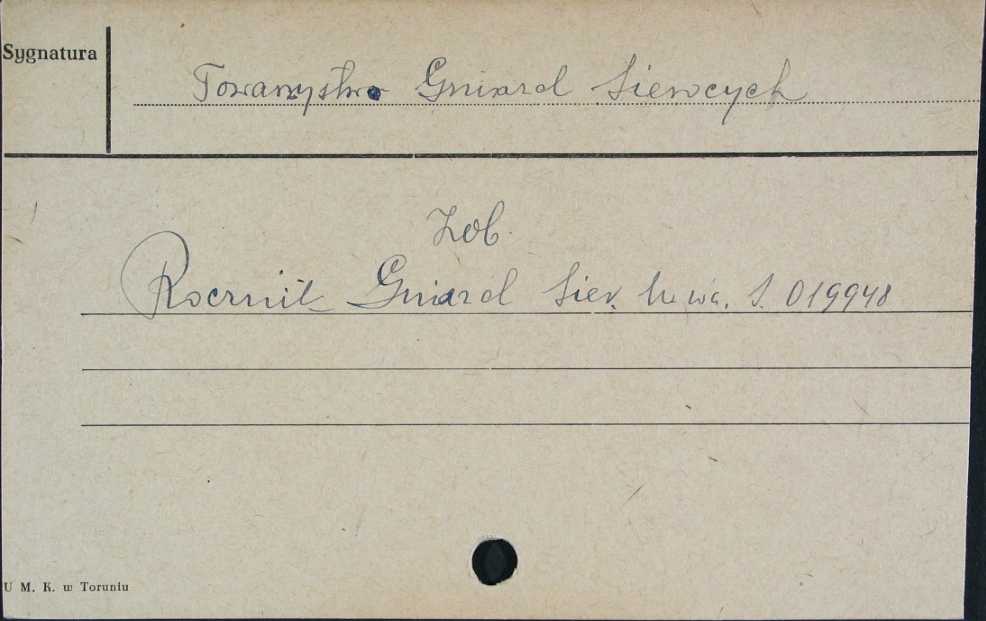 Sygnatura
Towarzystwo Gniazd Sierocych
Zob.
Rocznik Gniazd Sier. S. 019948
U M. K. w Toruniu